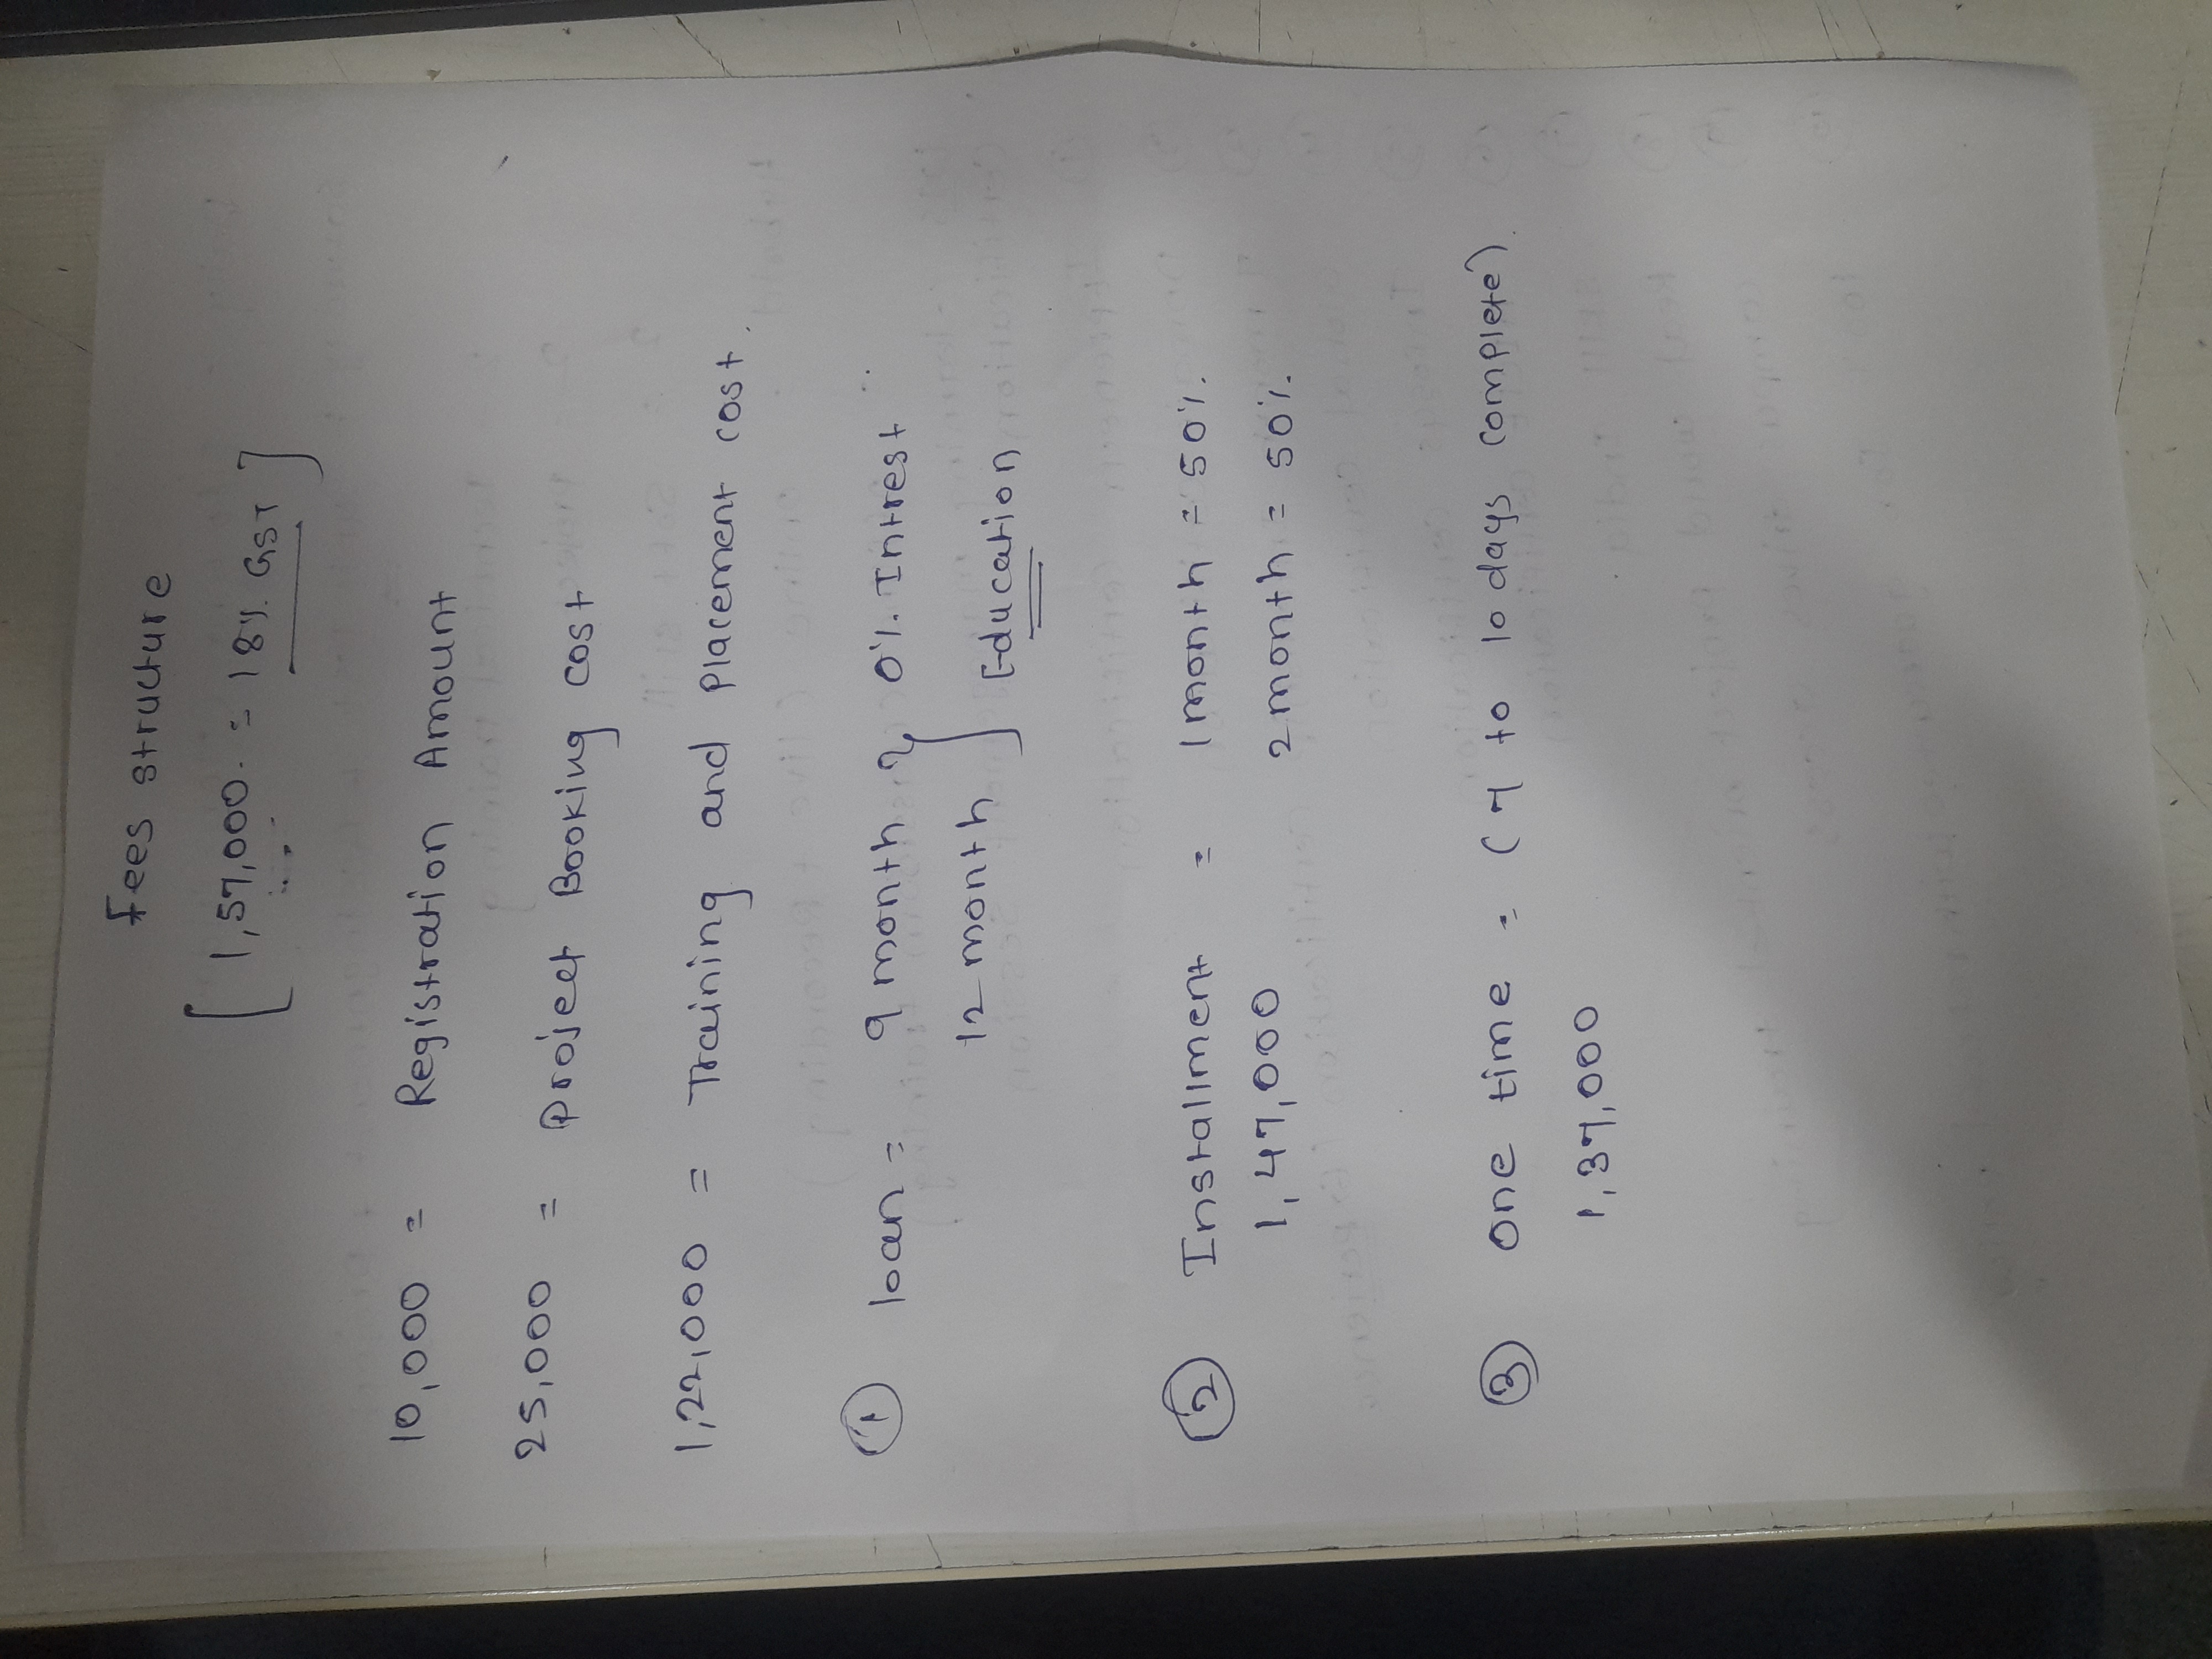 Fees structure
[ 1,57,000. = 18%. GST ]
10,000 = Registration Amount
25,000 = Project Booking cost
1,22,000 = Training and placement cost.
① loan = 9 month } 0%. Intrest
12 month } Education
② Installment = 1 month = 50%.
1,47,000 2 month = 50%.
③ One time = (7 to 10 days complete)
1,37,000